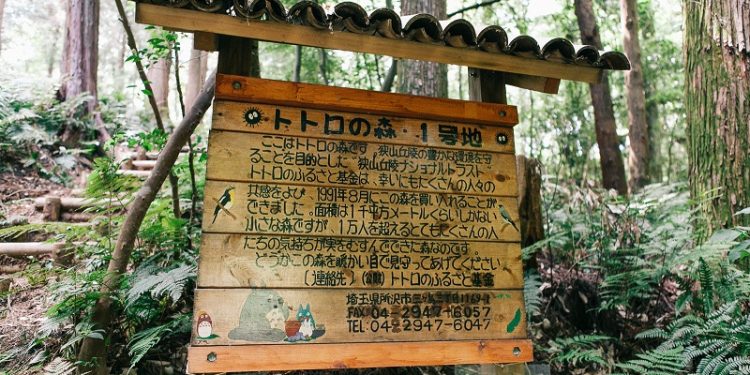 トトロの森・1号地
ここはトトロの森1号地です。狭山丘陵の豊かな環境を守
ることを目的とした 狭山丘陵ナショナルトラスト
トトロのふるさと基金は、幸いにもたくさんの人々の
共感をよび 1991年8月にこの森を買い入れることが
できました。面積は1千平方メートルくらいしかない
小さな森ですが、1万人を超えるとてもたくさんの人
たちの気持ちが実をむすんでできた森なのです。
どうかこの森を暖かい目で見守ってあげてください
(連絡先) トトロのふるさと基金
埼玉県所沢市
FAX 04-2947-6057
TEL:04-2947-6047